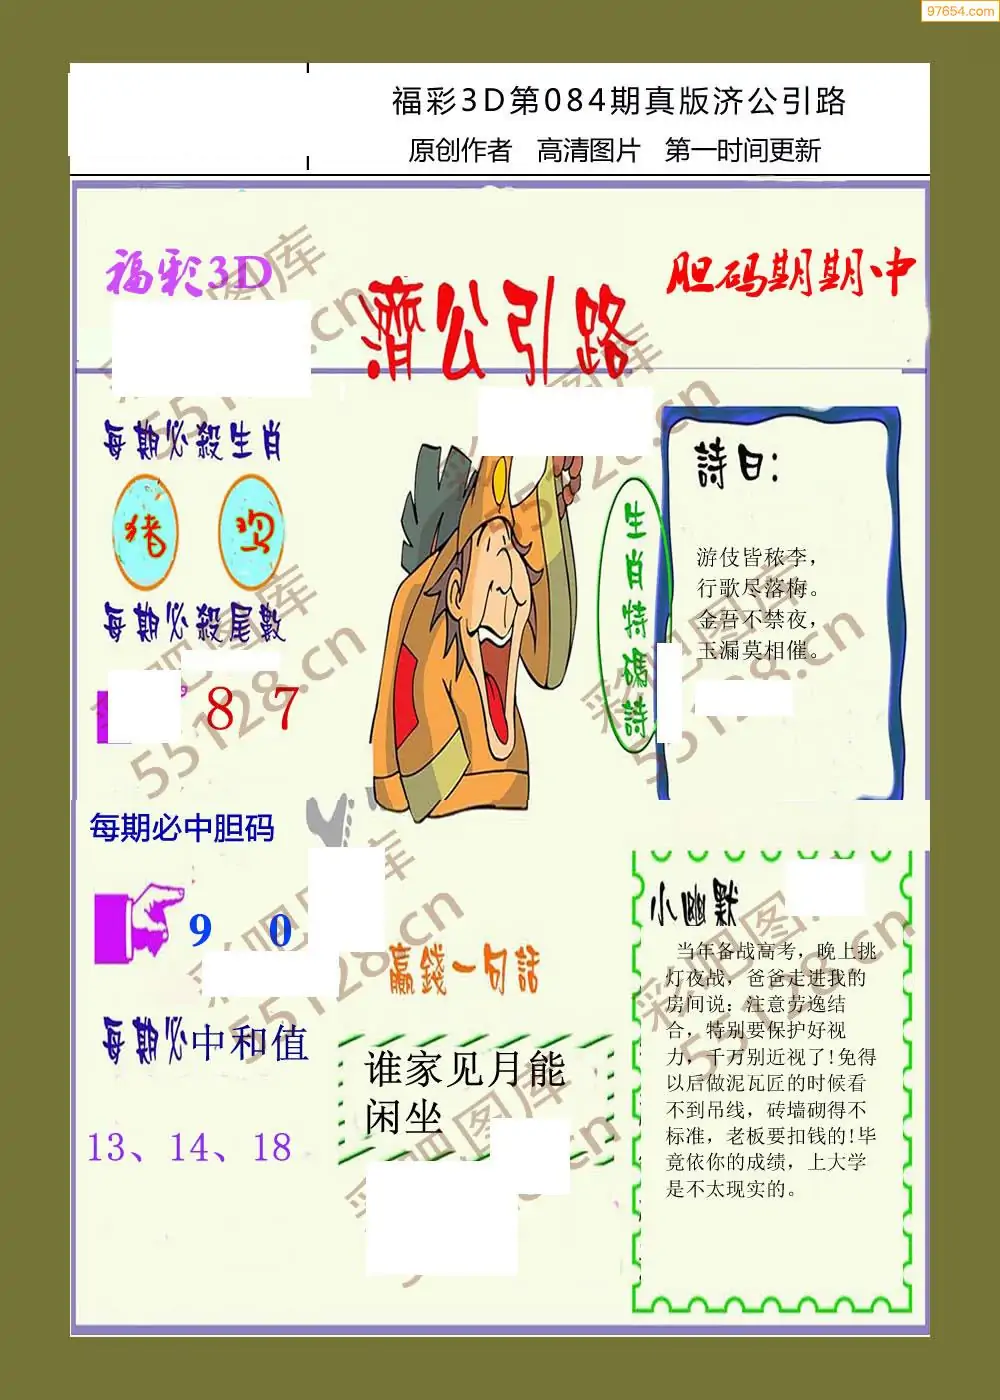 97654.com
福彩3D第084期真版济公引路
原创作者 高清图片 第一时间更新
福彩3D
濟公引路
胆码期期中
每期必殺生肖
猪 鸡
每期必殺尾數
8 7
每期必中胆码
9 0
每期必中和值
13、14、18
生肖特碼詩
詩曰：
游伎皆秾李，
行歌尽落梅。
金吾不禁夜，
玉漏莫相催。
赢錢一句話
谁家见月能
闲坐
小幽默
当年备战高考，晚上挑
灯夜战，爸爸走进我的
房间说：注意劳逸结
合，特别要保护好视
力，千万别近视了!免得
以后做泥瓦匠的时候看
不到吊线，砖墙砌得不
标准，老板要扣钱的!毕
竟依你的成绩，上大学
是不太现实的。
彩吧图库
55128.cn